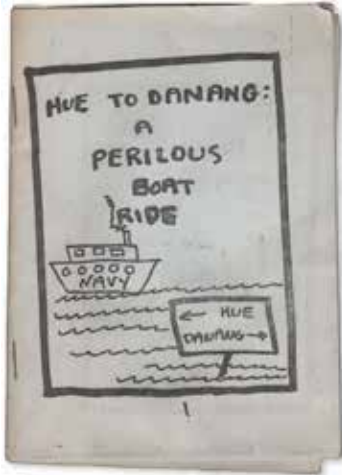 HUE TO DANANG:
A
PERILOUS
BOAT
RIDE
NAVY
← HUE
DANANG →
1